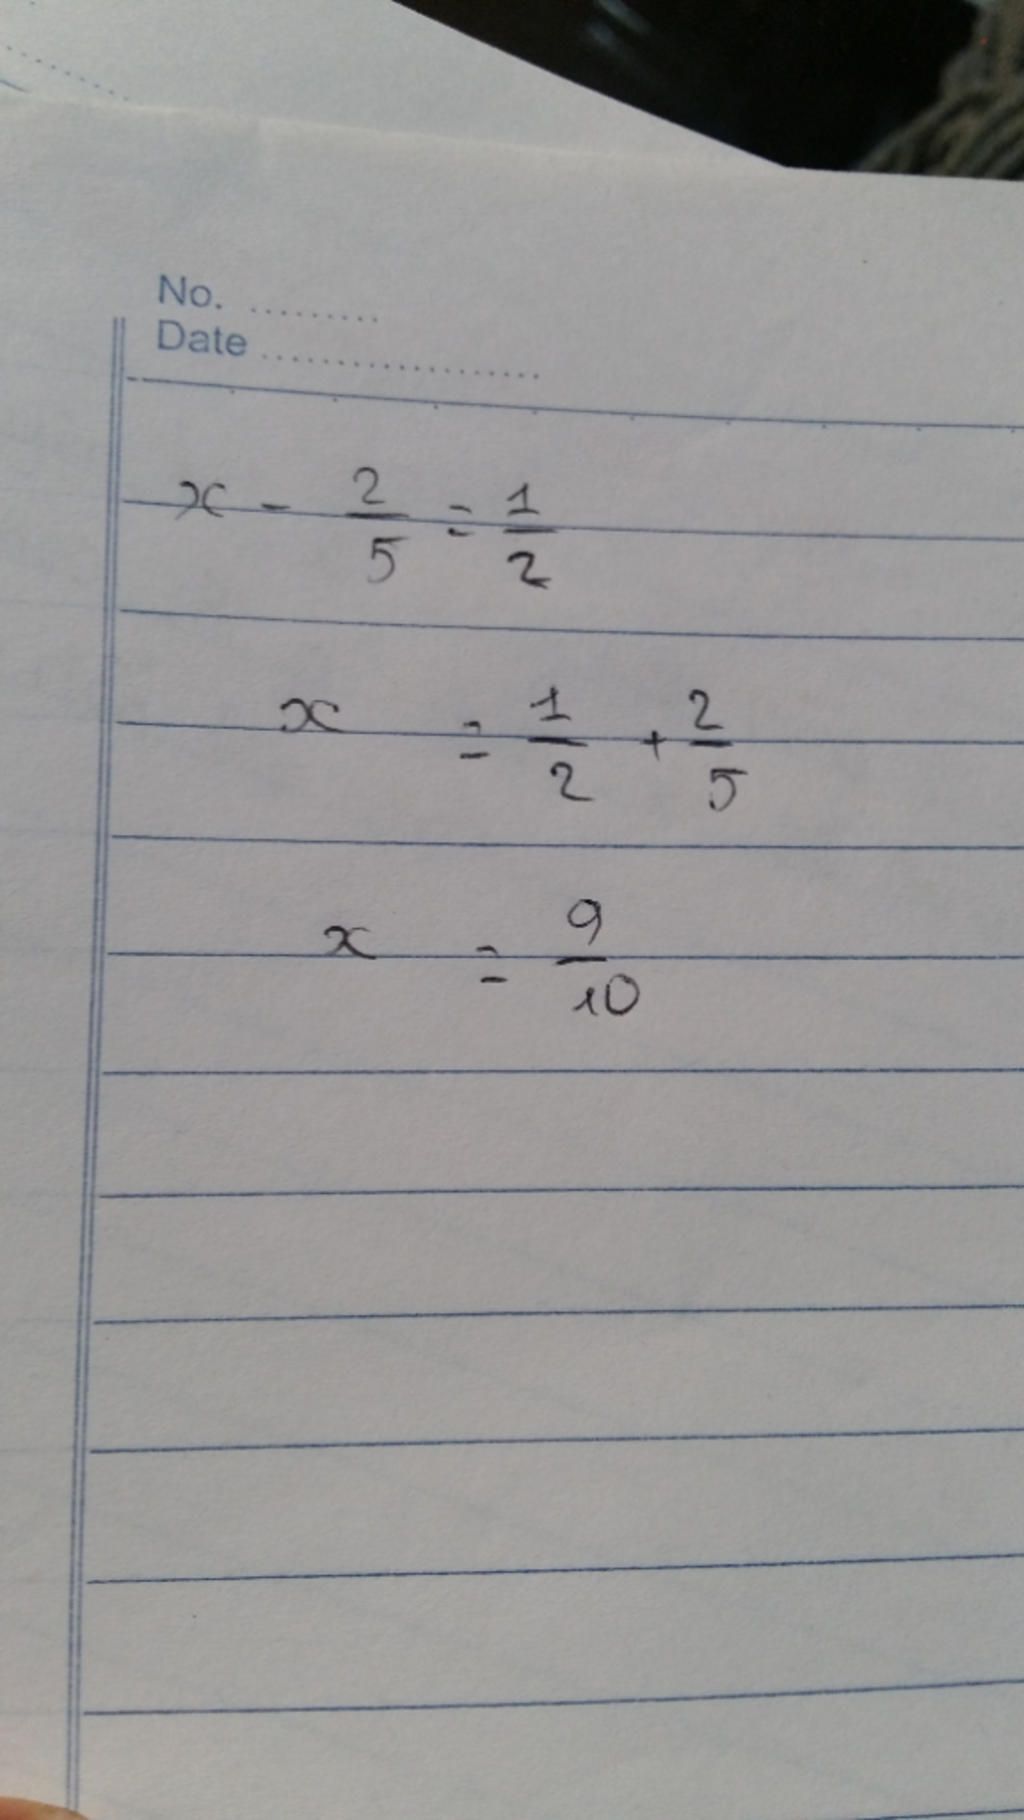 No. .........
Date ..................
x - 2/5 = 1/2
x = 1/2 + 2/5
x = 9/10